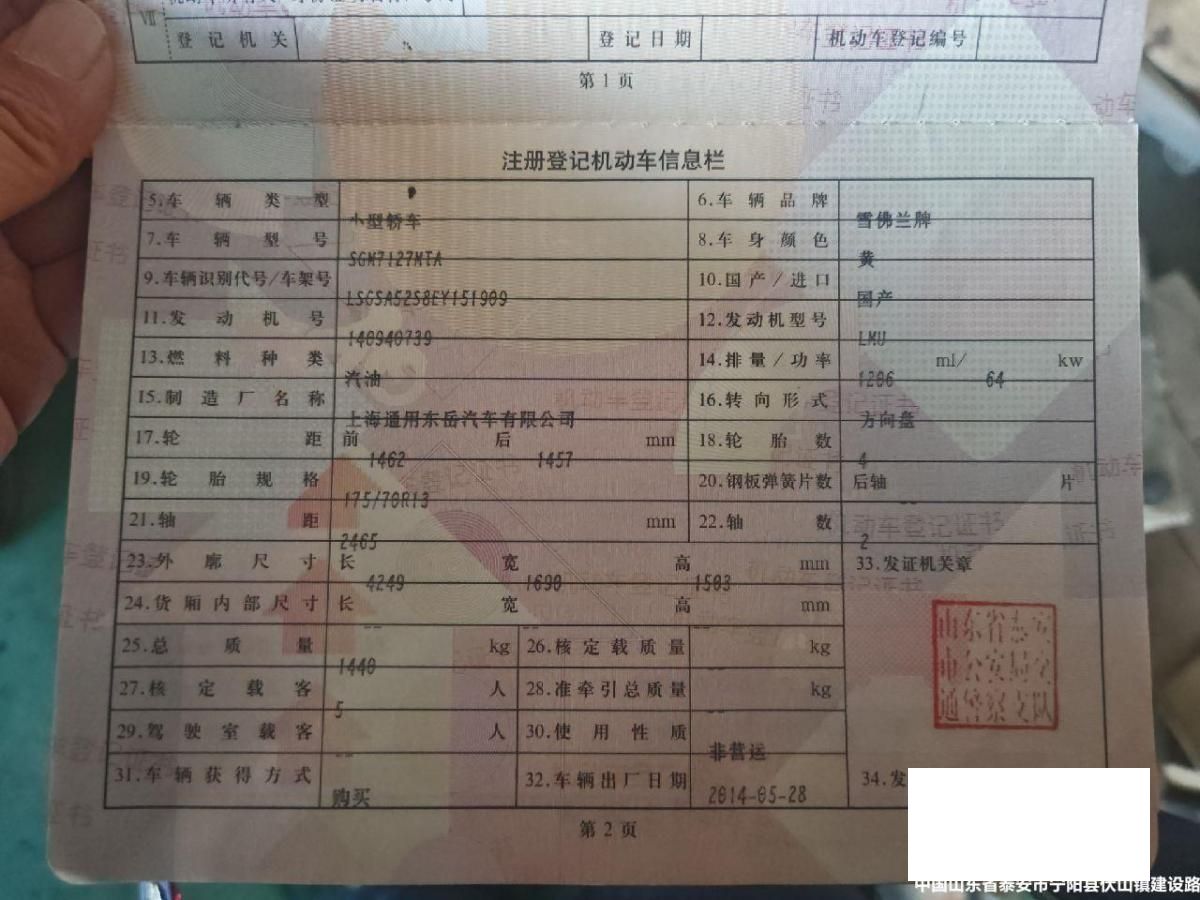 VII
登记机关 登记日期 机动车登记编号
第1页
注册登记机动车信息栏
5.车辆类型 小型轿车 6.车辆品牌 雪佛兰牌
7.车辆型号 SGM7127MTA 8.车身颜色 黄
9.车辆识别代号/车架号 LSGSA52S8EY151909 10.国产/进口 国产
11.发动机号 140940739 12.发动机型号 LMU
13.燃料种类 汽油 14.排量/功率 1206 ml/ 64 kw
15.制造厂名称 上海通用东岳汽车有限公司 16.转向形式 方向盘
17.轮距 前 1462 后 1457 mm 18.轮胎数 4
19.轮胎规格 175/70R13 20.钢板弹簧片数 后轴 -- 片
21.轴距 2465 mm 22.轴数 2
23.外廓尺寸 长 4249 宽 1690 高 1503 mm 33.发证机关章
24.货厢内部尺寸 长 -- 宽 -- 高 -- mm
25.总质量 1440 kg 26.核定载质量 -- kg
27.核定载客 5 人 28.准牵引总质量 -- kg
29.驾驶室载客 -- 人 30.使用性质 非营运
31.车辆获得方式 购买 32.车辆出厂日期 2014-05-28 34.发
山东省泰安
市公安局交
通警察支队
第2页
中国山东省泰安市宁阳县伏山镇建设路